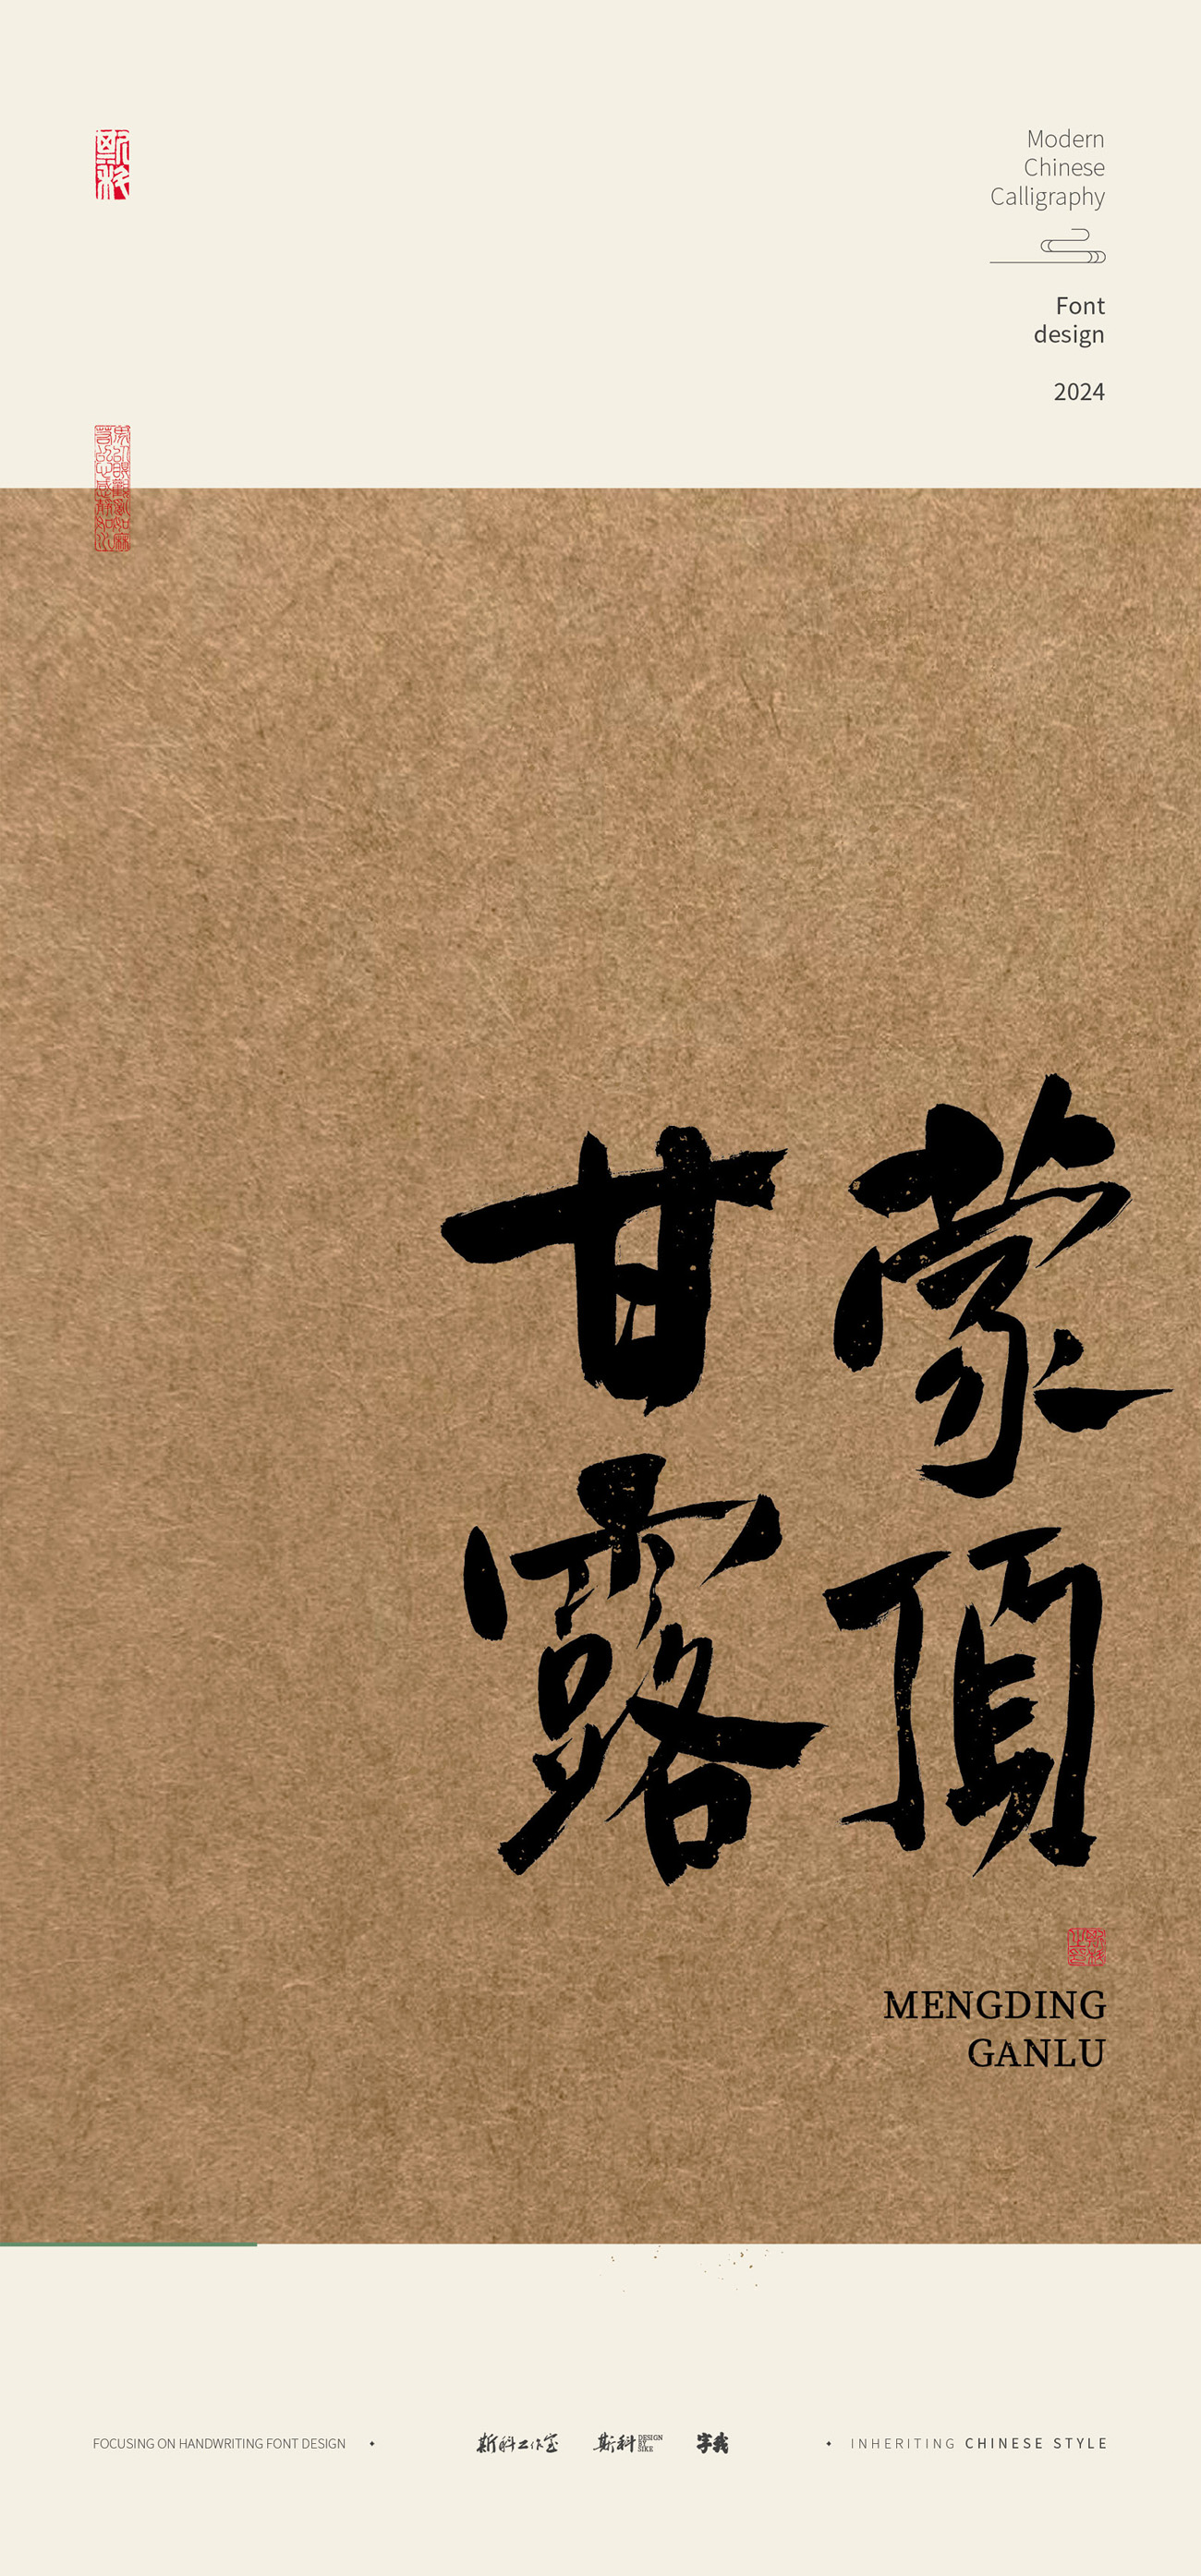 斯科
Modern
Chinese
Calligraphy
Font
design
2024
蒙頂
甘露
MENGDING
GANLU
FOCUSING ON HANDWRITING FONT DESIGN
斯科工作室
斯科
DESIGN
BY
SIKE
字我
INHERITING CHINESE STYLE